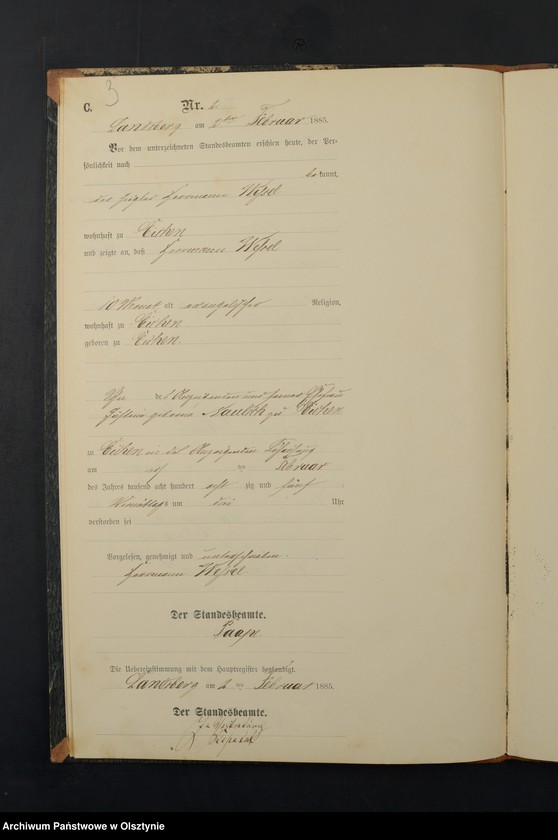 3
C. Nr. 6
Landsberg am 2ten Februar 1885.
Vor dem unterzeichneten Standesbeamten erschien heute, der Per-
sönlichkeit nach
bekannt,
Herrmann
wohnhaft zu Eichen
und zeigte an, daß Herrmann
10 Monat alt evangelischer Religion,
wohnhaft zu Eichen
geboren zu Eichen
Sohn des Anzeigenden und seiner Ehefrau
geborene zu Eichen
zu Eichen in des Anzeigenden Behausung
am ten Februar
des Jahres tausend acht hundert acht zig und fünf
Vormittags um drei Uhr
verstorben sei
Vorgelesen, genehmigt und unterschrieben.
Herrmann
Der Standesbeamte.
Die Uebereinstimmung mit dem Hauptregister beglaubigt.
Landsberg am 2 ten Februar 1885.
Der Standesbeamte.
In Vertretung
Archiwum Państwowe w Olsztynie